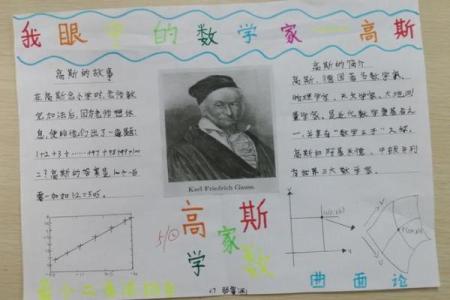 我眼中的数学家——高斯
高斯的故事
在高斯念小学时,老师教
完加法后,因为老师想休
息,便给他们出了一道题:
1+2+3+……+97+98+99+100
=?高斯的答案是
高斯的简介
高斯,德国著名数学家,
物理学家,天文学家,大地测
量学家,是近代数学奠基者之
一,并享有"数学王子"之称。
高斯和阿基米德、牛顿并列
为世界三大数学家。
Karl Friedrich Gauss.
高斯
学家数
曲面论